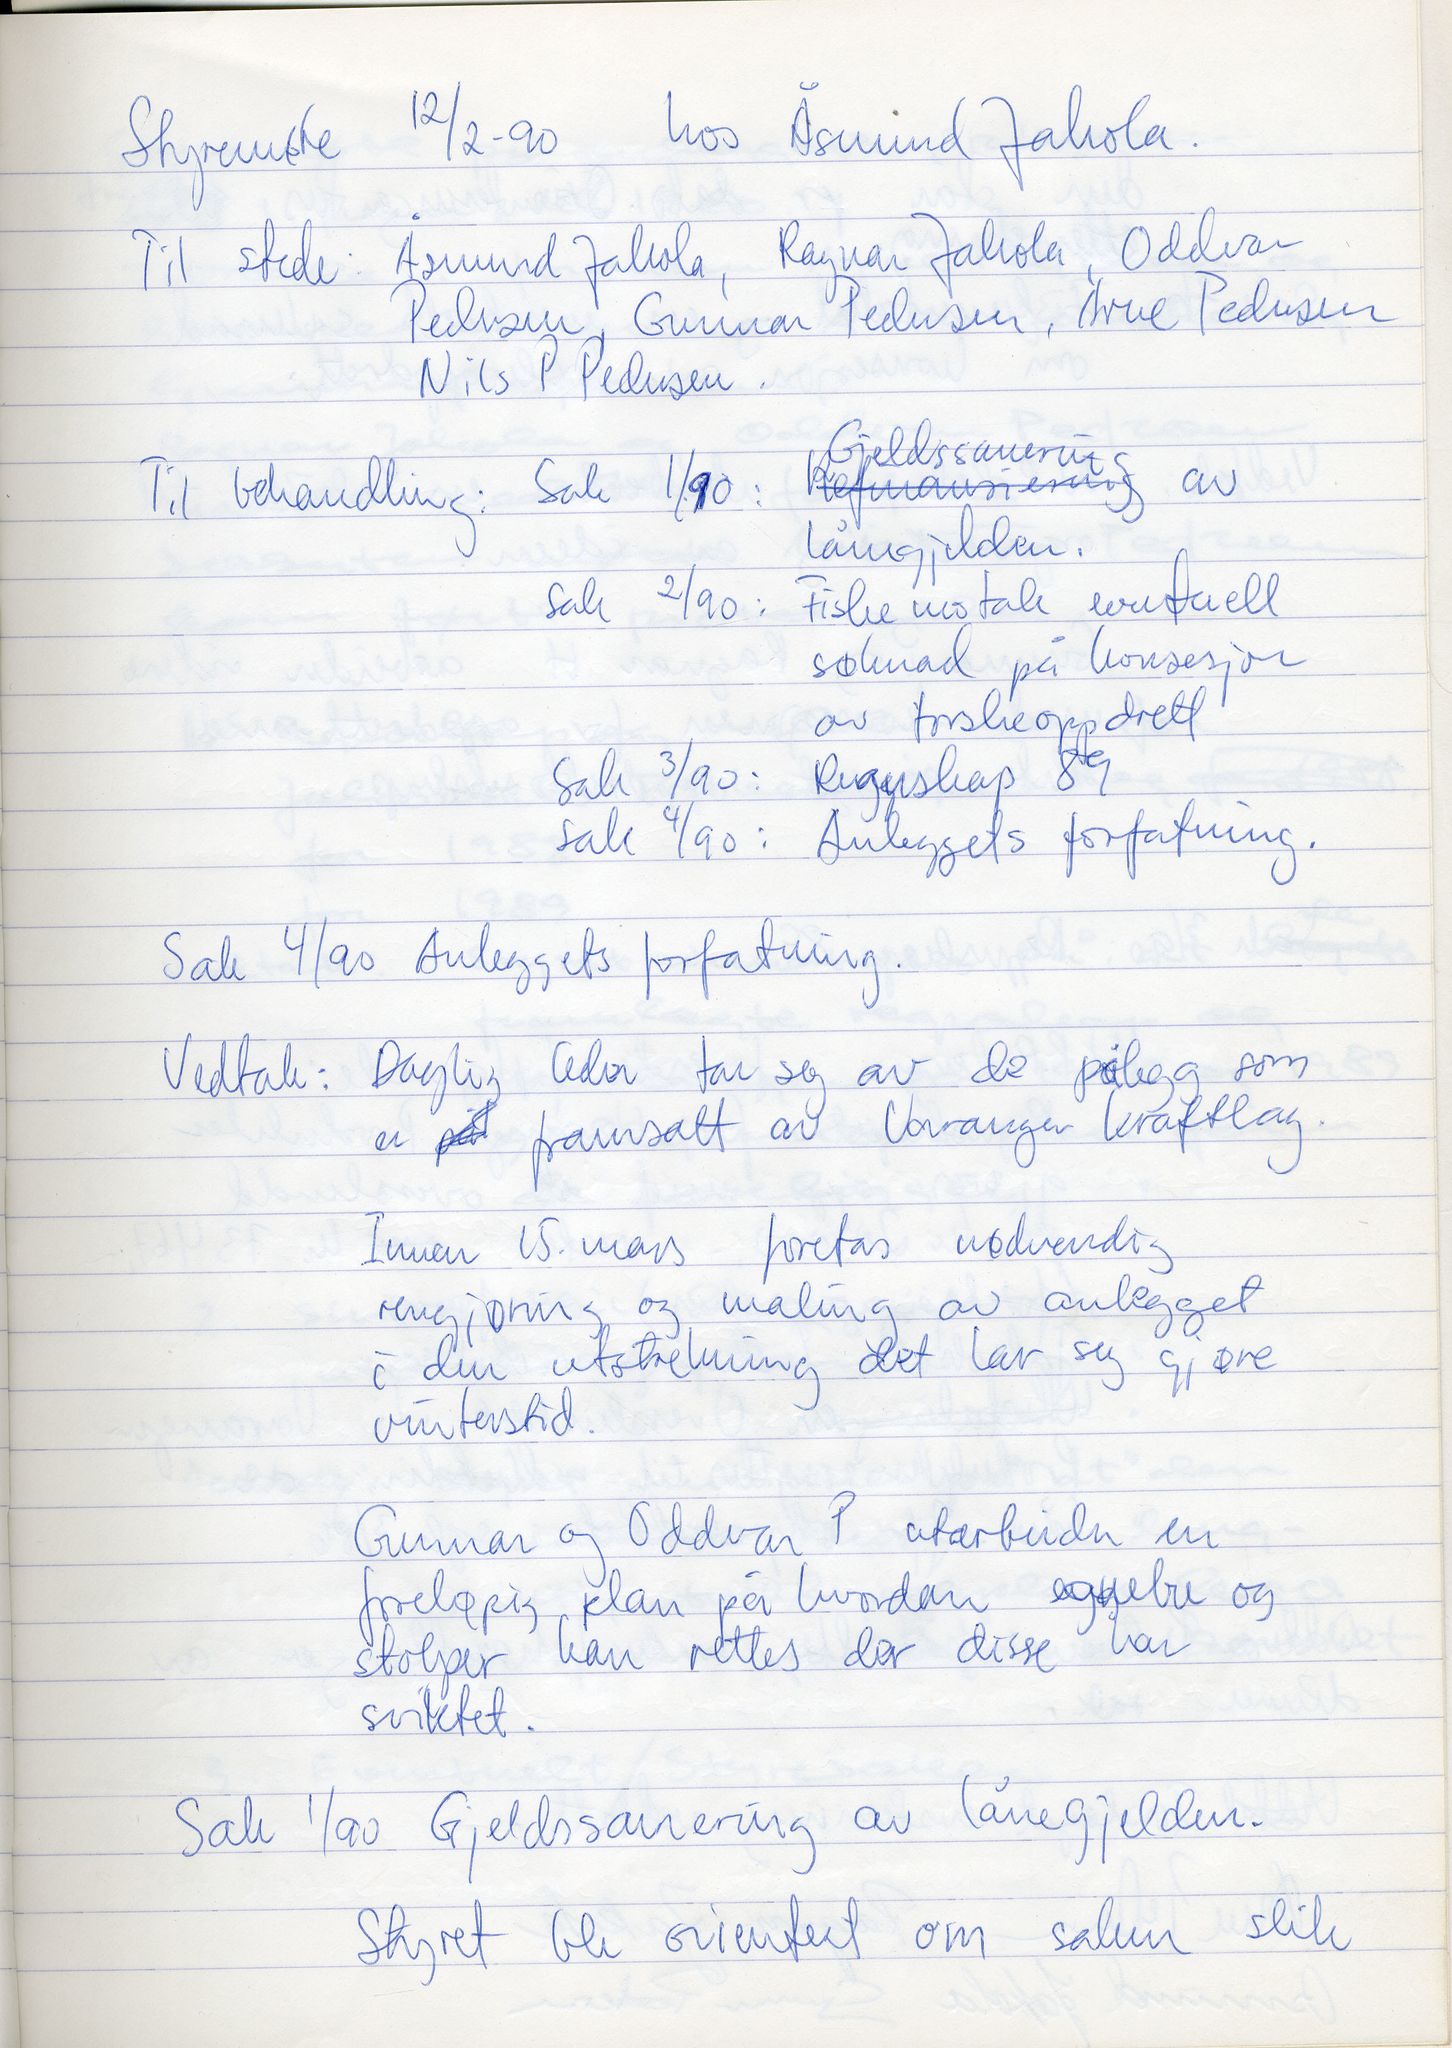 Styremøte 12/2-90 hos Åsmund Jakola.
Til stede: Åsmund Jakola, Ragnar Jakola, Oddvar
Pedersen, Gunnar Pedersen, Arne Pedersen
Nils P Pedersen.
Gjeldssanering
Til behandling: Sak 1/90: Refinansiering av
lånegjelden.
Sak 2/90: Fiskemotak eventuell
søknad på konsesjon
av torskeoppdrett
Sak 3/90: Regnskap 89
Sak 4/90: Anleggets forfatning.
Sak 4/90 Anleggets forfatning.
Vedtak: Daglig leder tar seg av de pålegg som
er framsatt av Varanger kraftlag.
Innen 15. mars foretas nødvendig
rengjøring og maling av anlegget
i den utstrekning det lar seg gjøre
vinterstid.
Gunnar og Oddvar P utarbeider en
foreløpig plan på hvordan og
stolper kan rettes der disse har
sviktet.
Sak 1/90 Gjeldssanering av lånegjelden.
Styret ble orientert om saken slik